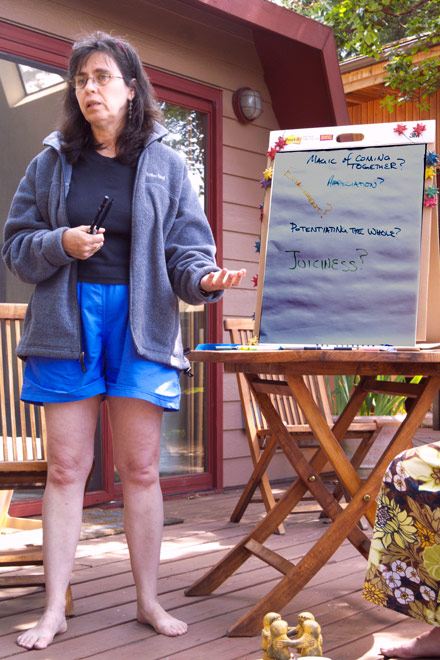 MAGIC OF COMING
TOGETHER?
ASSOCIATION?
POTENTIATING THE WHOLE?
JUICINESS?